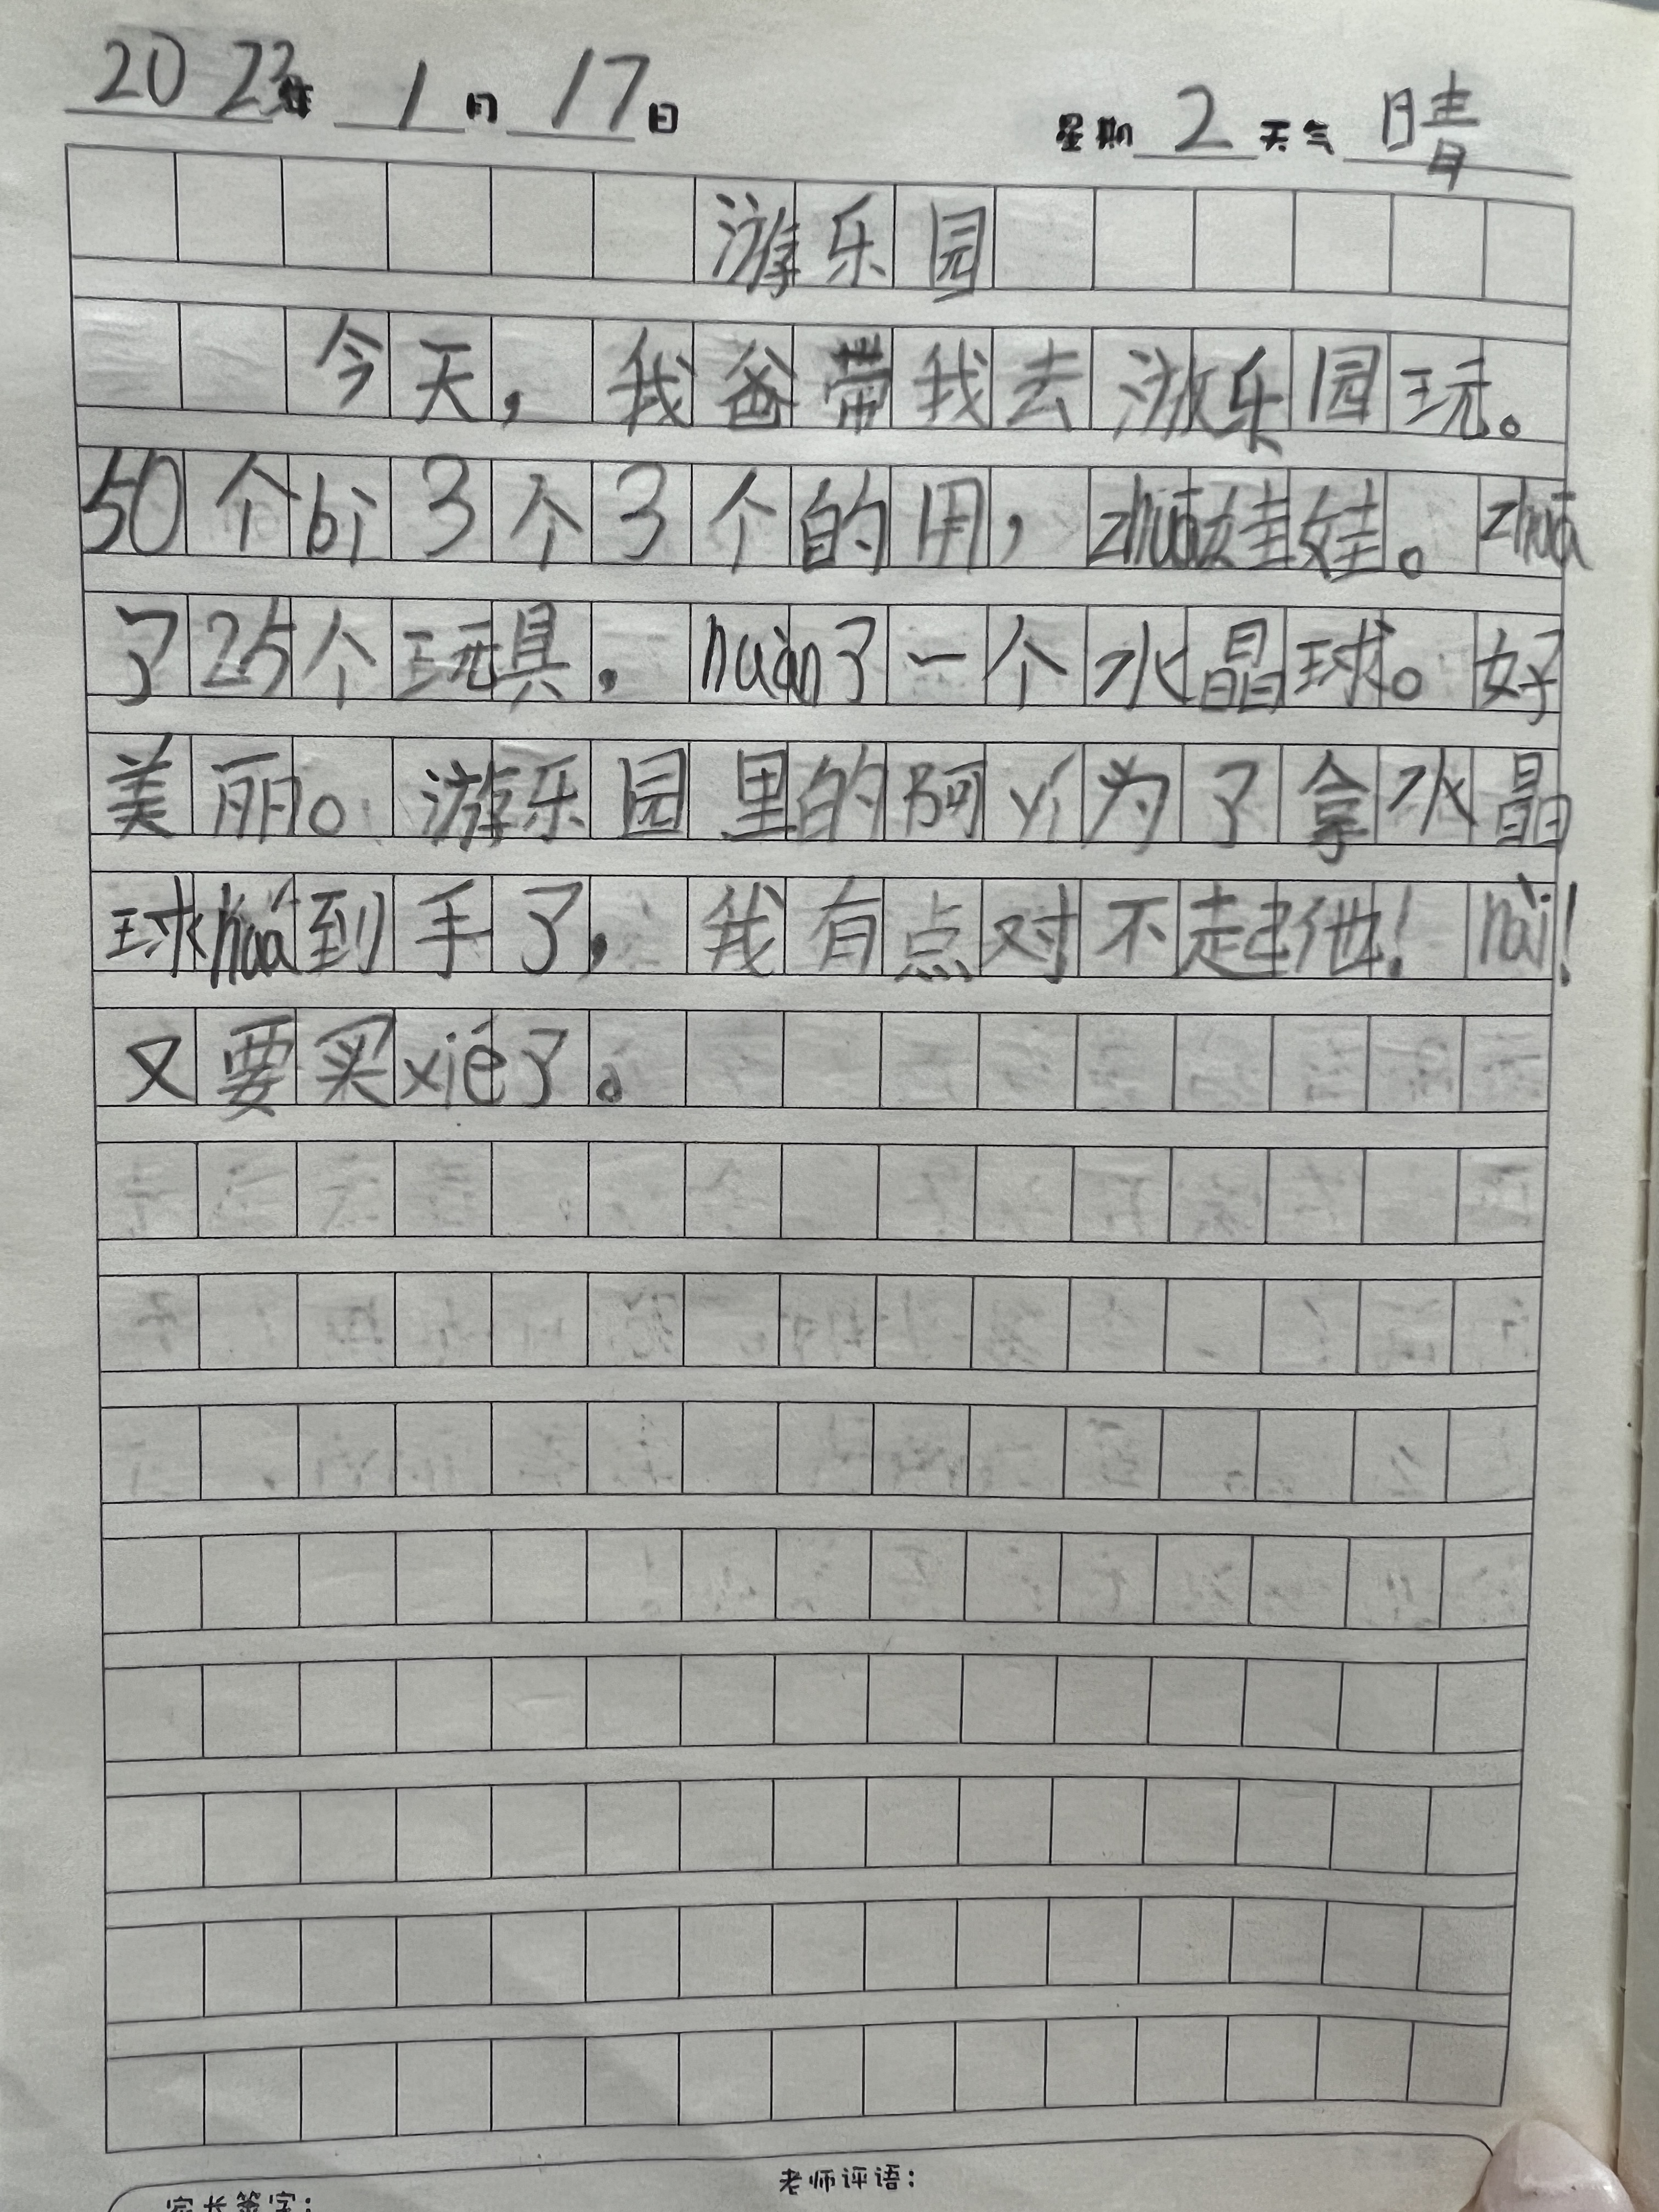 2023年1月17日 星期2天气晴
游乐园
今天，我爸带我去游乐园玩。
50个bì3个3个的用，zhuā娃娃。zhuā
了25个玩具，huàn了一个水晶球。好
美丽。游乐园里的阿yí为了拿水晶
球huá到手了，我有点对不起他！nài！
又要买xié了。
老师评语：
家长签字：